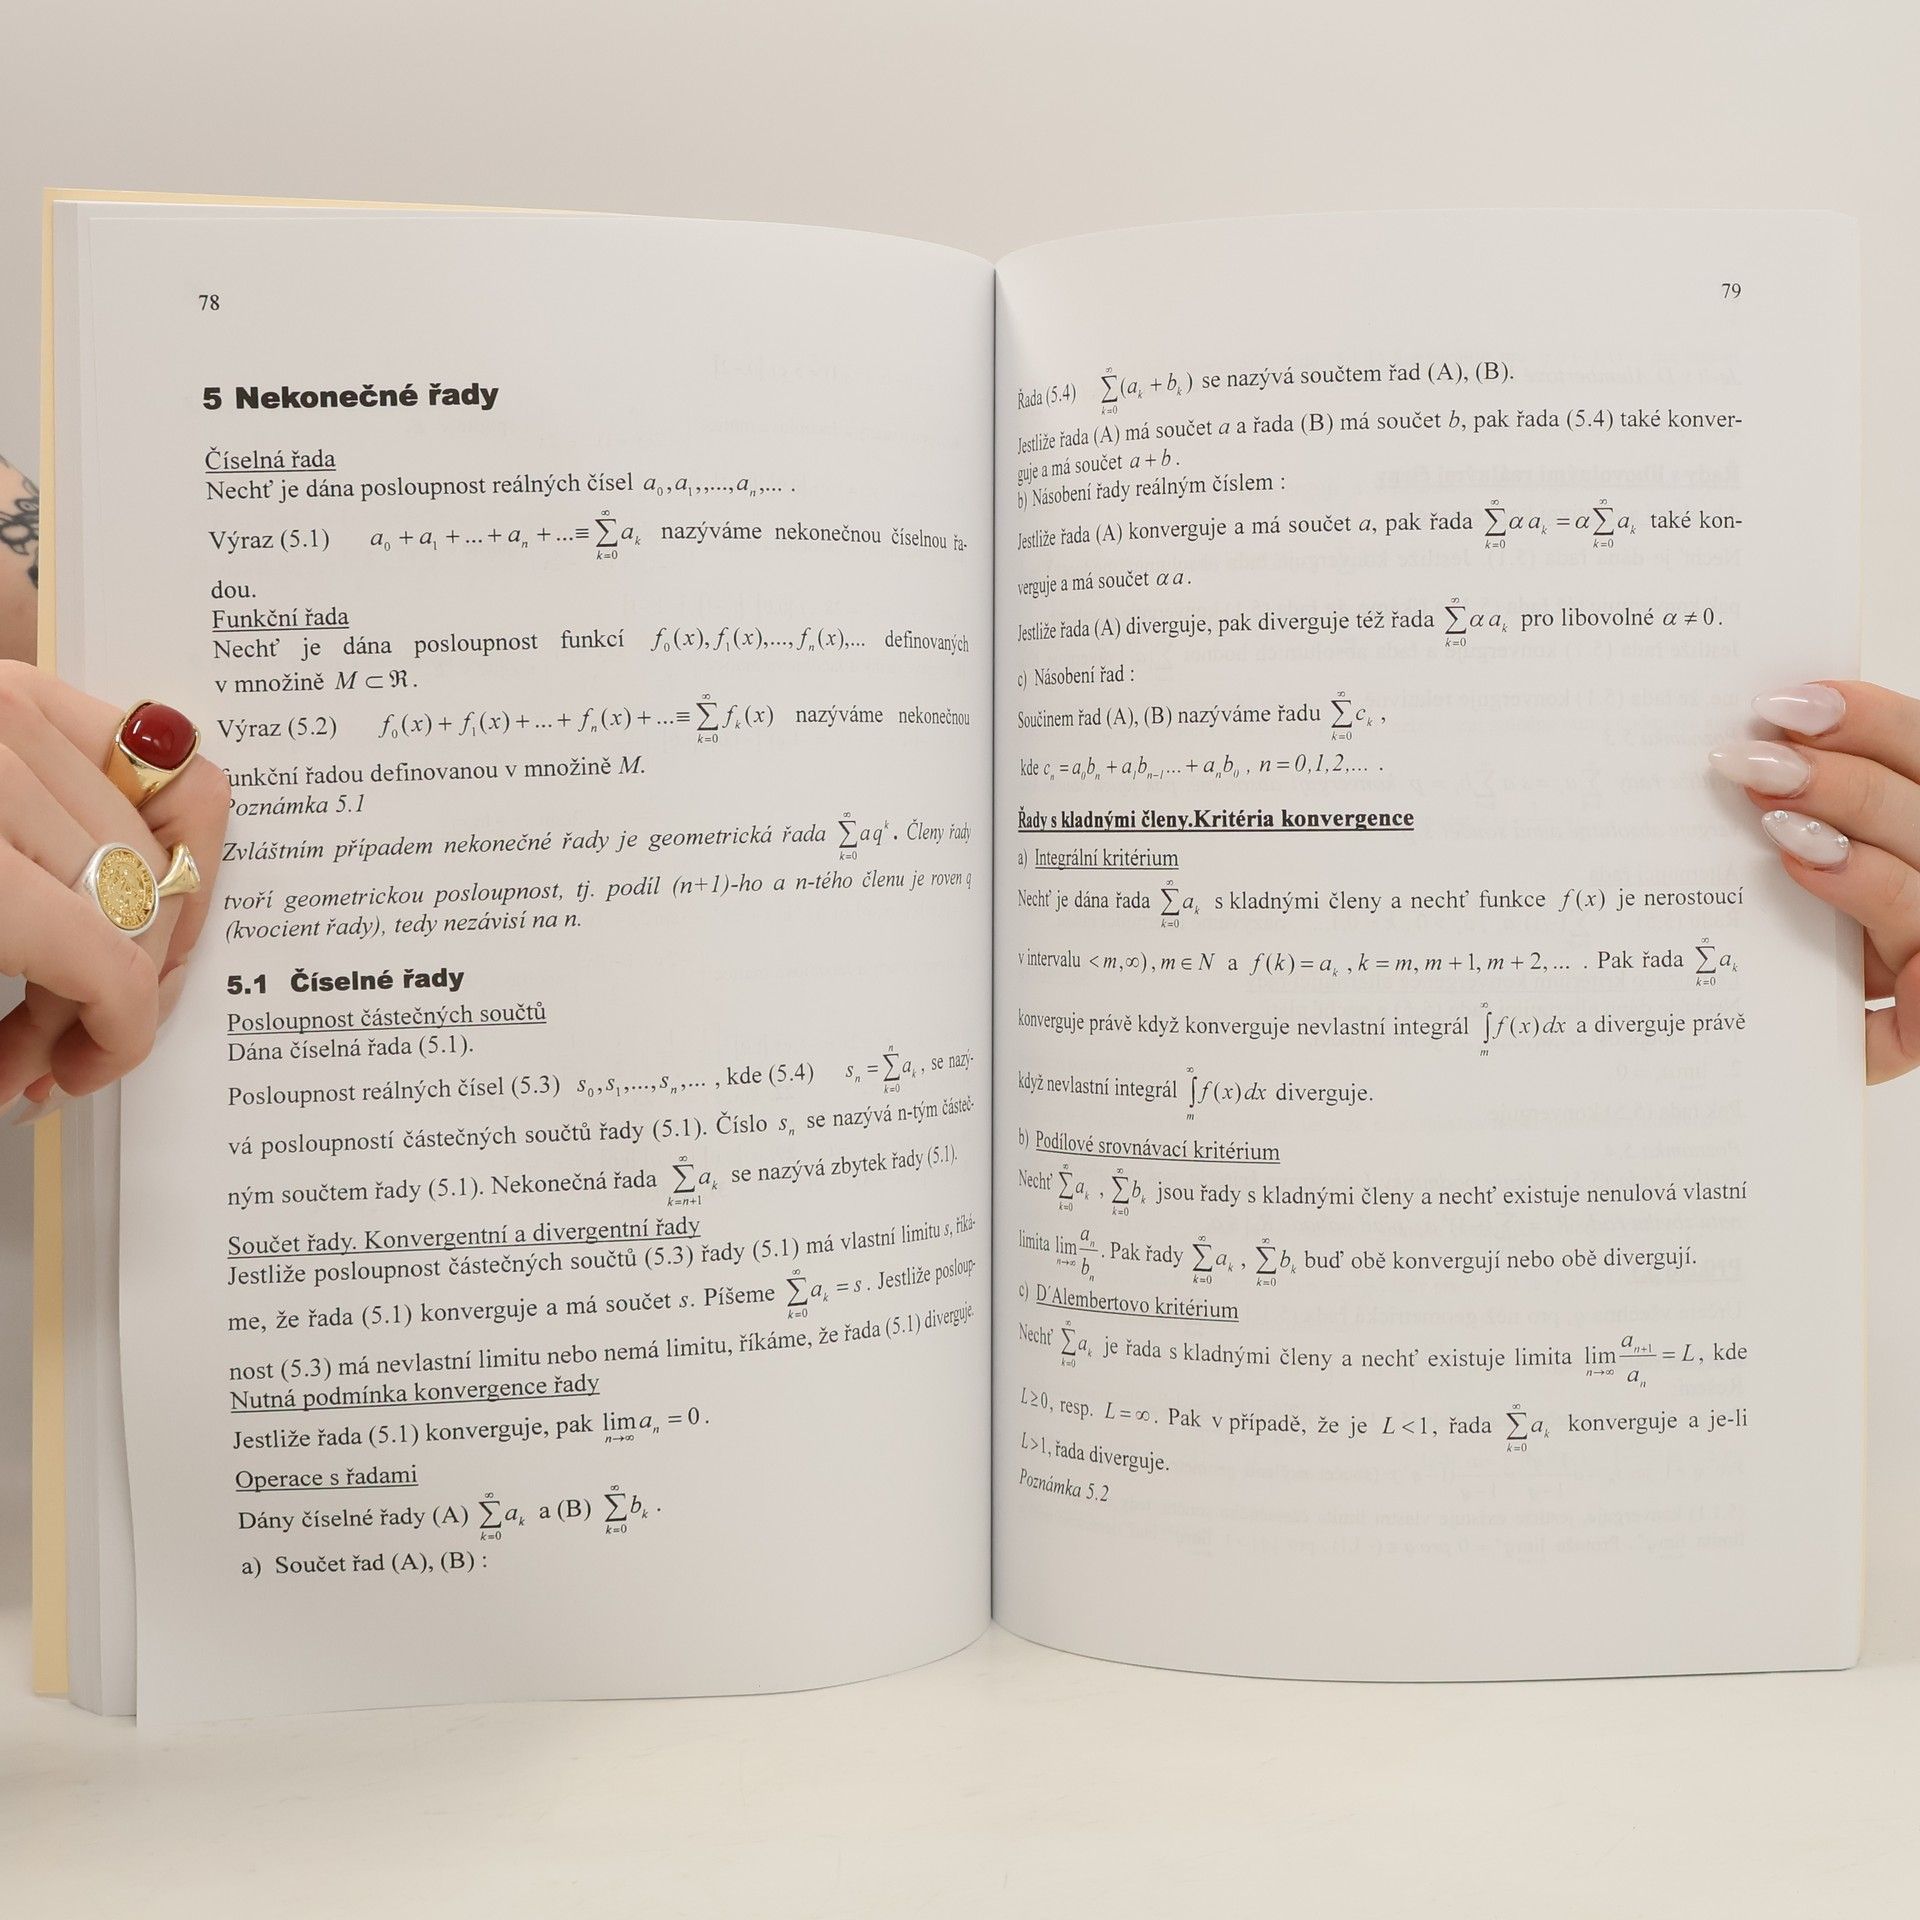 78
5 Nekonečné řady
Číselná řada
Nechť je dána posloupnost reálných čísel a₀,a₁,,...,aₙ,... .
Výraz (5.1) a₀ + a₁ + ... + aₙ + ...≡ ∑_{k=0}^{∞} aₖ nazýváme nekonečnou číselnou řa-
dou.
Funkční řada
Nechť je dána posloupnost funkcí f₀(x), f₁(x),..., fₙ(x),... definovaných
v množině M ⊂ ℜ.
Výraz (5.2) f₀(x) + f₁(x) + ... + fₙ(x) + ...≡ ∑_{k=0}^{∞} fₖ(x) nazýváme nekonečnou
funkční řadou definovanou v množině M.
Poznámka 5.1
Zvláštním případem nekonečné řady je geometrická řada ∑_{k=0}^{∞} aq^k. Členy řady
tvoří geometrickou posloupnost, tj. podíl (n+1)-ho a n-tého členu je roven q
(kvocient řady), tedy nezávisí na n.
5.1 Číselné řady
Posloupnost částečných součtů
Dána číselná řada (5.1).
Posloupnost reálných čísel (5.3) s₀,s₁,...,sₙ,... , kde (5.4) sₙ = ∑_{k=0}^{n} aₖ, se nazý-
vá posloupností částečných součtů řady (5.1). Číslo sₙ se nazývá n-tým částeč-
ným součtem řady (5.1). Nekonečná řada ∑_{k=n+1}^{∞} aₖ se nazývá zbytek řady (5.1).
Součet řady. Konvergentní a divergentní řady
Jestliže posloupnost částečných součtů (5.3) řady (5.1) má vlastní limitu s, říká-
me, že řada (5.1) konverguje a má součet s. Píšeme ∑_{k=0}^{∞} aₖ = s. Jestliže posloup-
nost (5.3) má nevlastní limitu nebo nemá limitu, říkáme, že řada (5.1) diverguje.
Nutná podmínka konvergence řady
Jestliže řada (5.1) konverguje, pak lim_{n→∞} aₙ = 0.
Operace s řadami
Dány číselné řady (A) ∑_{k=0}^{∞} aₖ a (B) ∑_{k=0}^{∞} bₖ .
a) Součet řad (A), (B) :
79
Řada (5.4) ∑_{k=0}^{∞} (aₖ + bₖ) se nazývá součtem řad (A), (B).
Jestliže řada (A) má součet a a řada (B) má součet b, pak řada (5.4) také konver-
guje a má součet a + b.
b) Násobení řady reálným číslem :
Jestliže řada (A) konverguje a má součet a, pak řada ∑_{k=0}^{∞} α aₖ = α ∑_{k=0}^{∞} aₖ také kon-
verguje a má součet α a.
Jestliže řada (A) diverguje, pak diverguje též řada ∑_{k=0}^{∞} α aₖ pro libovolné α ≠ 0.
c) Násobení řad :
Součinem řad (A), (B) nazýváme řadu ∑_{k=0}^{∞} cₖ ,
kde cₙ = a₀bₙ + a₁bₙ₋₁... + aₙb₀ , n = 0,1,2,... .
Řady s kladnými členy.Kritéria konvergence
a) Integrální kritérium
Nechť je dána řada ∑_{k=0}^{∞} aₖ s kladnými členy a nechť funkce f(x) je nerostoucí
v intervalu <m,∞), m ∈ N a f(k) = aₖ , k = m, m + 1, m + 2, ... . Pak řada ∑_{k=0}^{∞} aₖ
konverguje právě když konverguje nevlastní integrál ∫_{m}^{∞} f(x)dx a diverguje právě
když nevlastní integrál ∫_{m}^{∞} f(x)dx diverguje.
b) Podílové srovnávací kritérium
Nechť ∑_{k=0}^{∞} aₖ , ∑_{k=0}^{∞} bₖ jsou řady s kladnými členy a nechť existuje nenulová vlastní
limita lim_{n→∞} aₙ/bₙ. Pak řady ∑_{k=0}^{∞} aₖ , ∑_{k=0}^{∞} bₖ buď obě konvergují nebo obě divergují.
c) D´Alembertovo kritérium
Nechť ∑_{k=0}^{∞} aₖ je řada s kladnými členy a nechť existuje limita lim_{n→∞} aₙ₊₁/aₙ = L, kde
L≥0, resp. L = ∞. Pak v případě, že je L < 1, řada ∑_{k=0}^{∞} aₖ konverguje a je-li
L>1, řada diverguje.
Poznámka 5.2